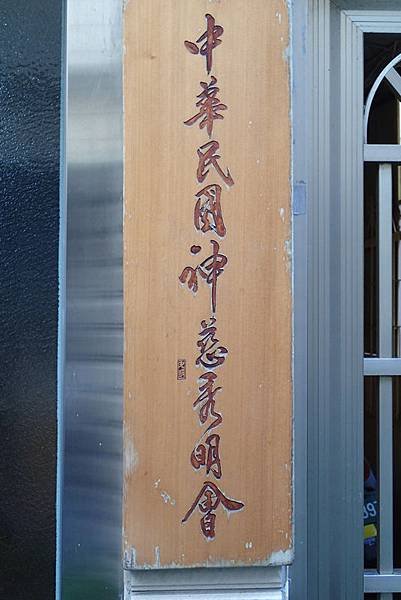 中華民國神慈秀明會